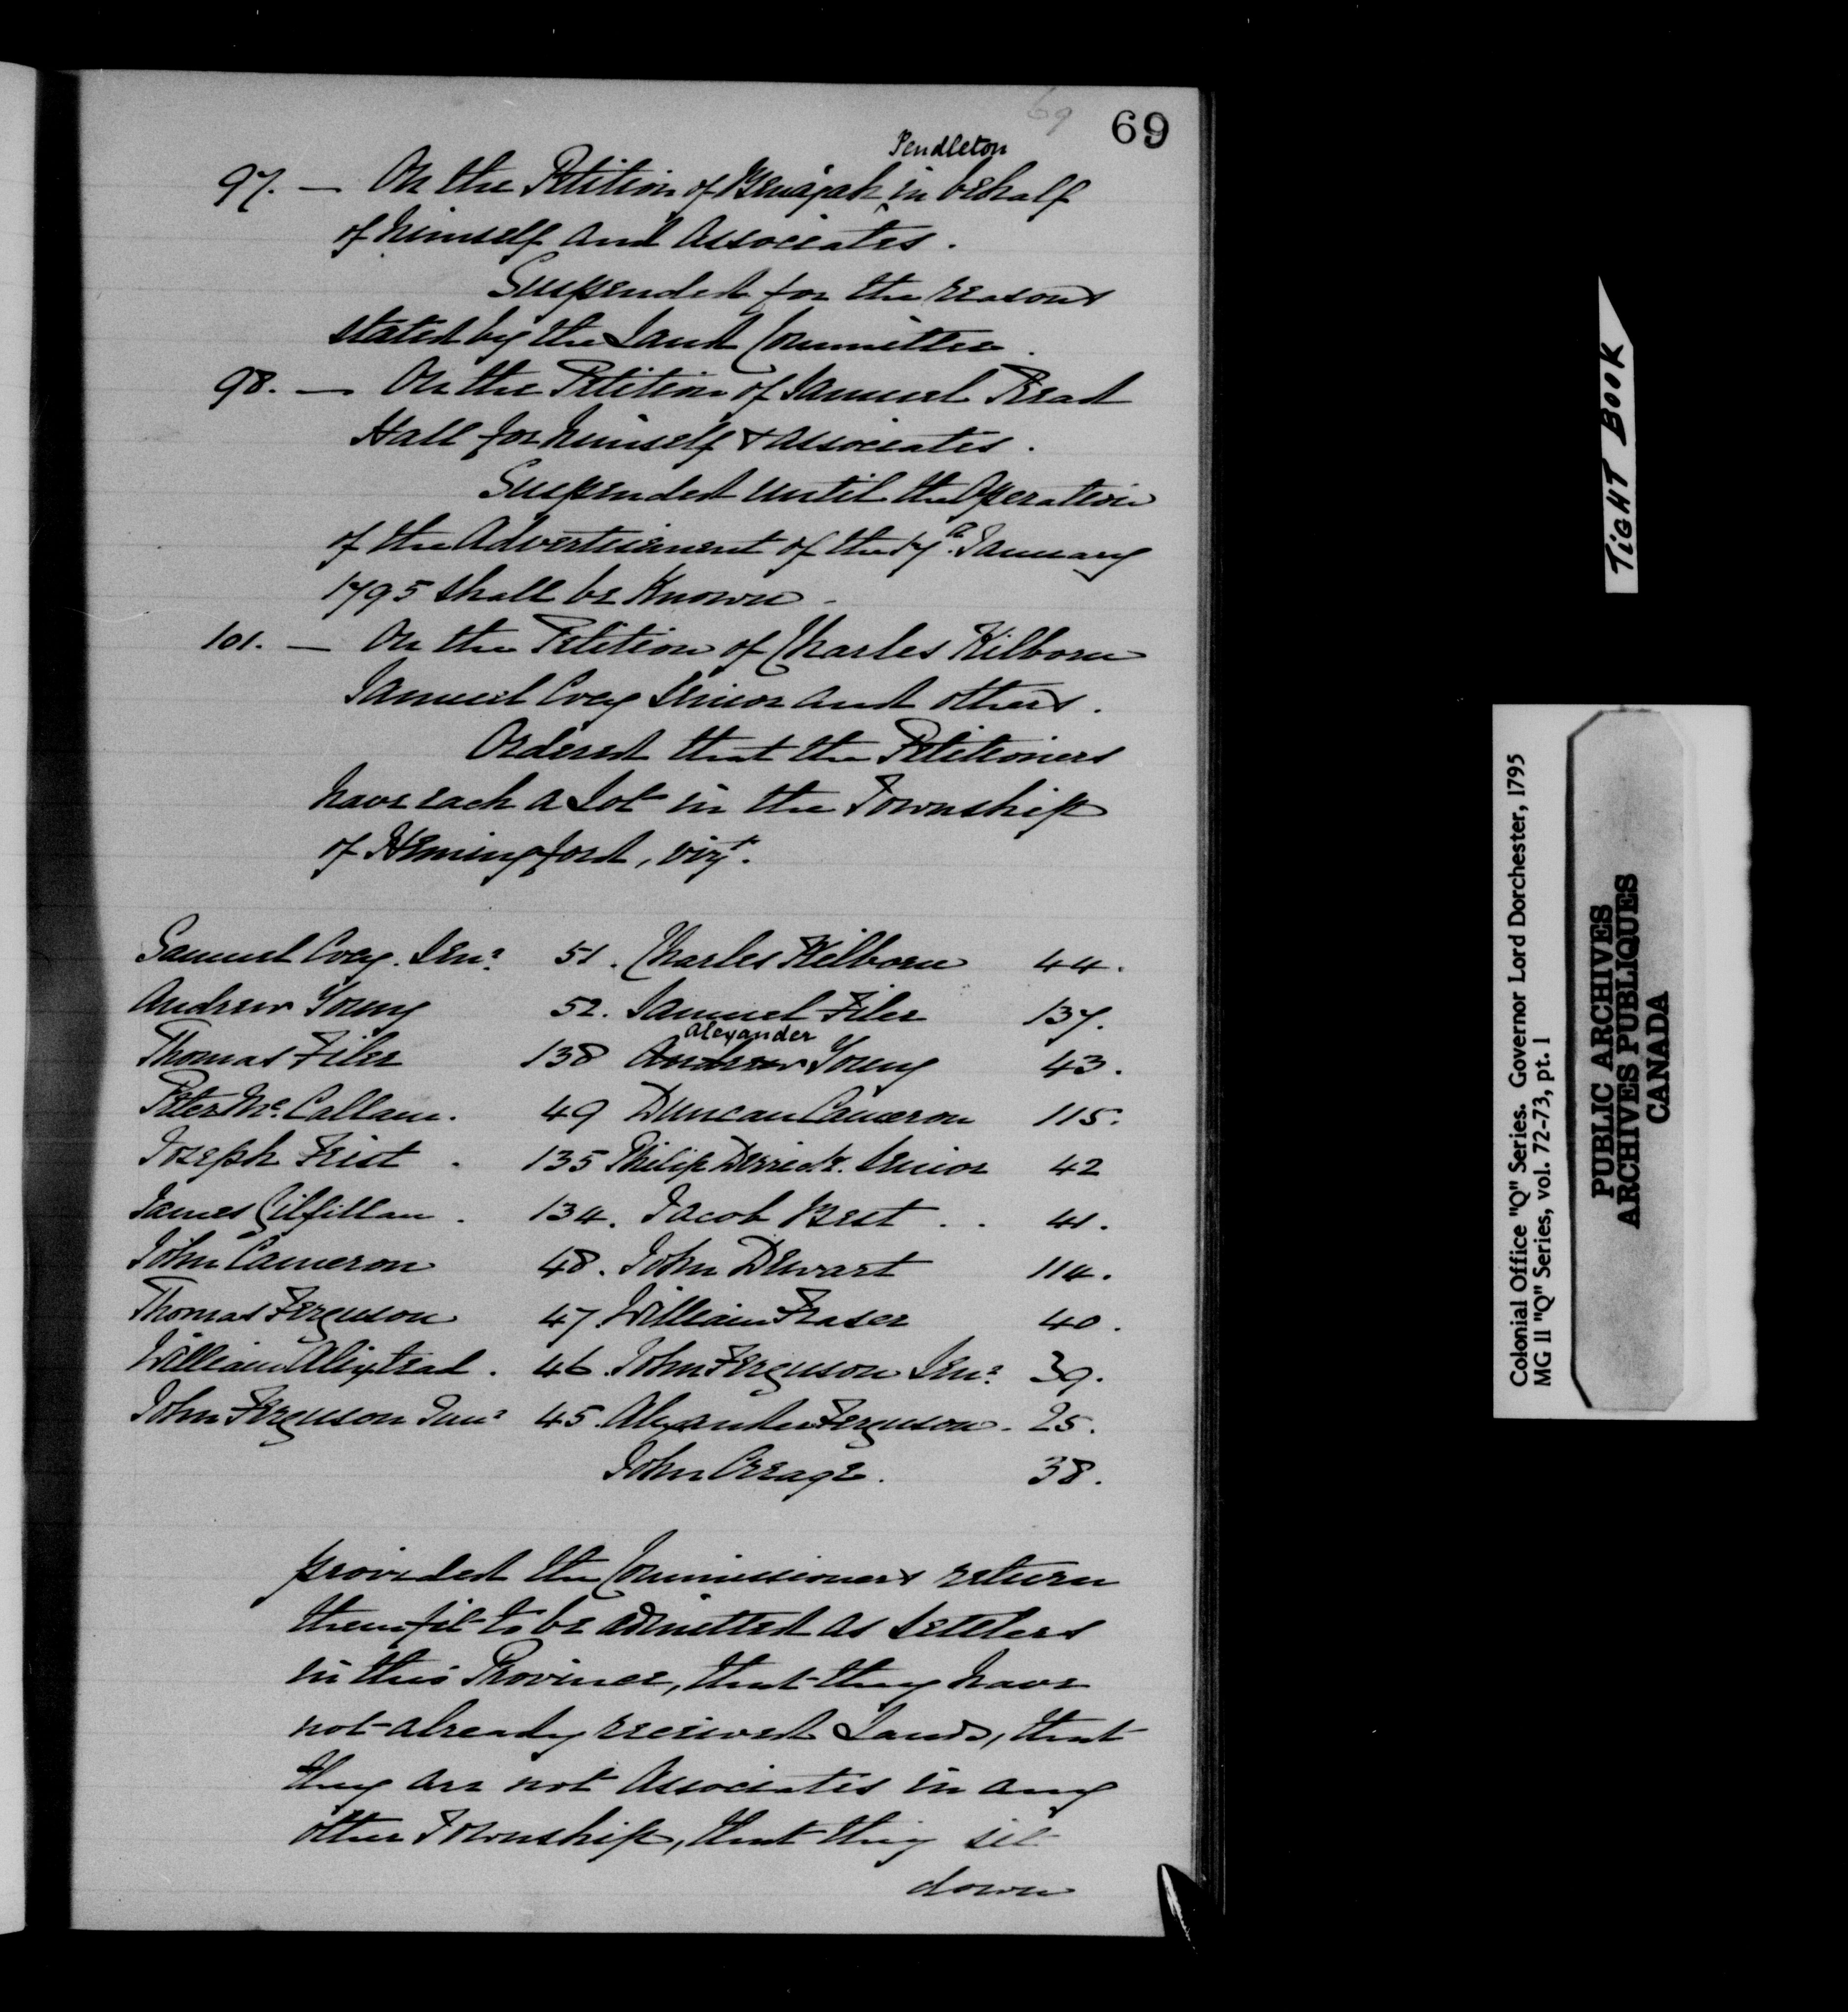 69
69
Pendleton
97. — On the Petition of Benajah ^ in behalf
of himself and Associates.
Suspended for the reasons
stated by the Land Committee.
98. — On the Petition of Samuel Read
Hall for himself & associates.
Suspended until the Operation
of the Advertisement of the 17th January
1795 shall be Known -
101. — On the Petition of Charles Kilborn
Samuel Cray Senior and others.
Ordered that the Petitioners
have each a Lot in the Township
of Hemingford, vizt.
Samuel Cray. Senr. 51. Charles Kilborn 44.
Andrew Young 52. Samuel Filer 137.
Alexander
Thomas Filer 138 Andrew Young 43.
Peter Mc. Callam. 49 Duncan Cameron 115.
Joseph . 135 Philip Derrick. Senior 42
James Gilfillan. 134. Jacob Best . . 41.
John Cameron 48. John Dewart 114.
Thomas Ferguson 47. William Fraser 40.
William . 46. John Ferguson Senr. 39.
John Ferguson Junr 45. Alexander Ferguson. 25.
John . 38.
provided the Commissioners return
them fit to be admitted as settlers
in this Province, that they have
not already received Lands, that
they are not Associates in any
other Township, that they sit
down
TIGHT BOOK
Colonial Office "Q" Series. Governor Lord Dorchester, 1795
MG 11 "Q" Series, vol. 72-73, pt. 1
PUBLIC ARCHIVES
ARCHIVES PUBLIQUES
CANADA